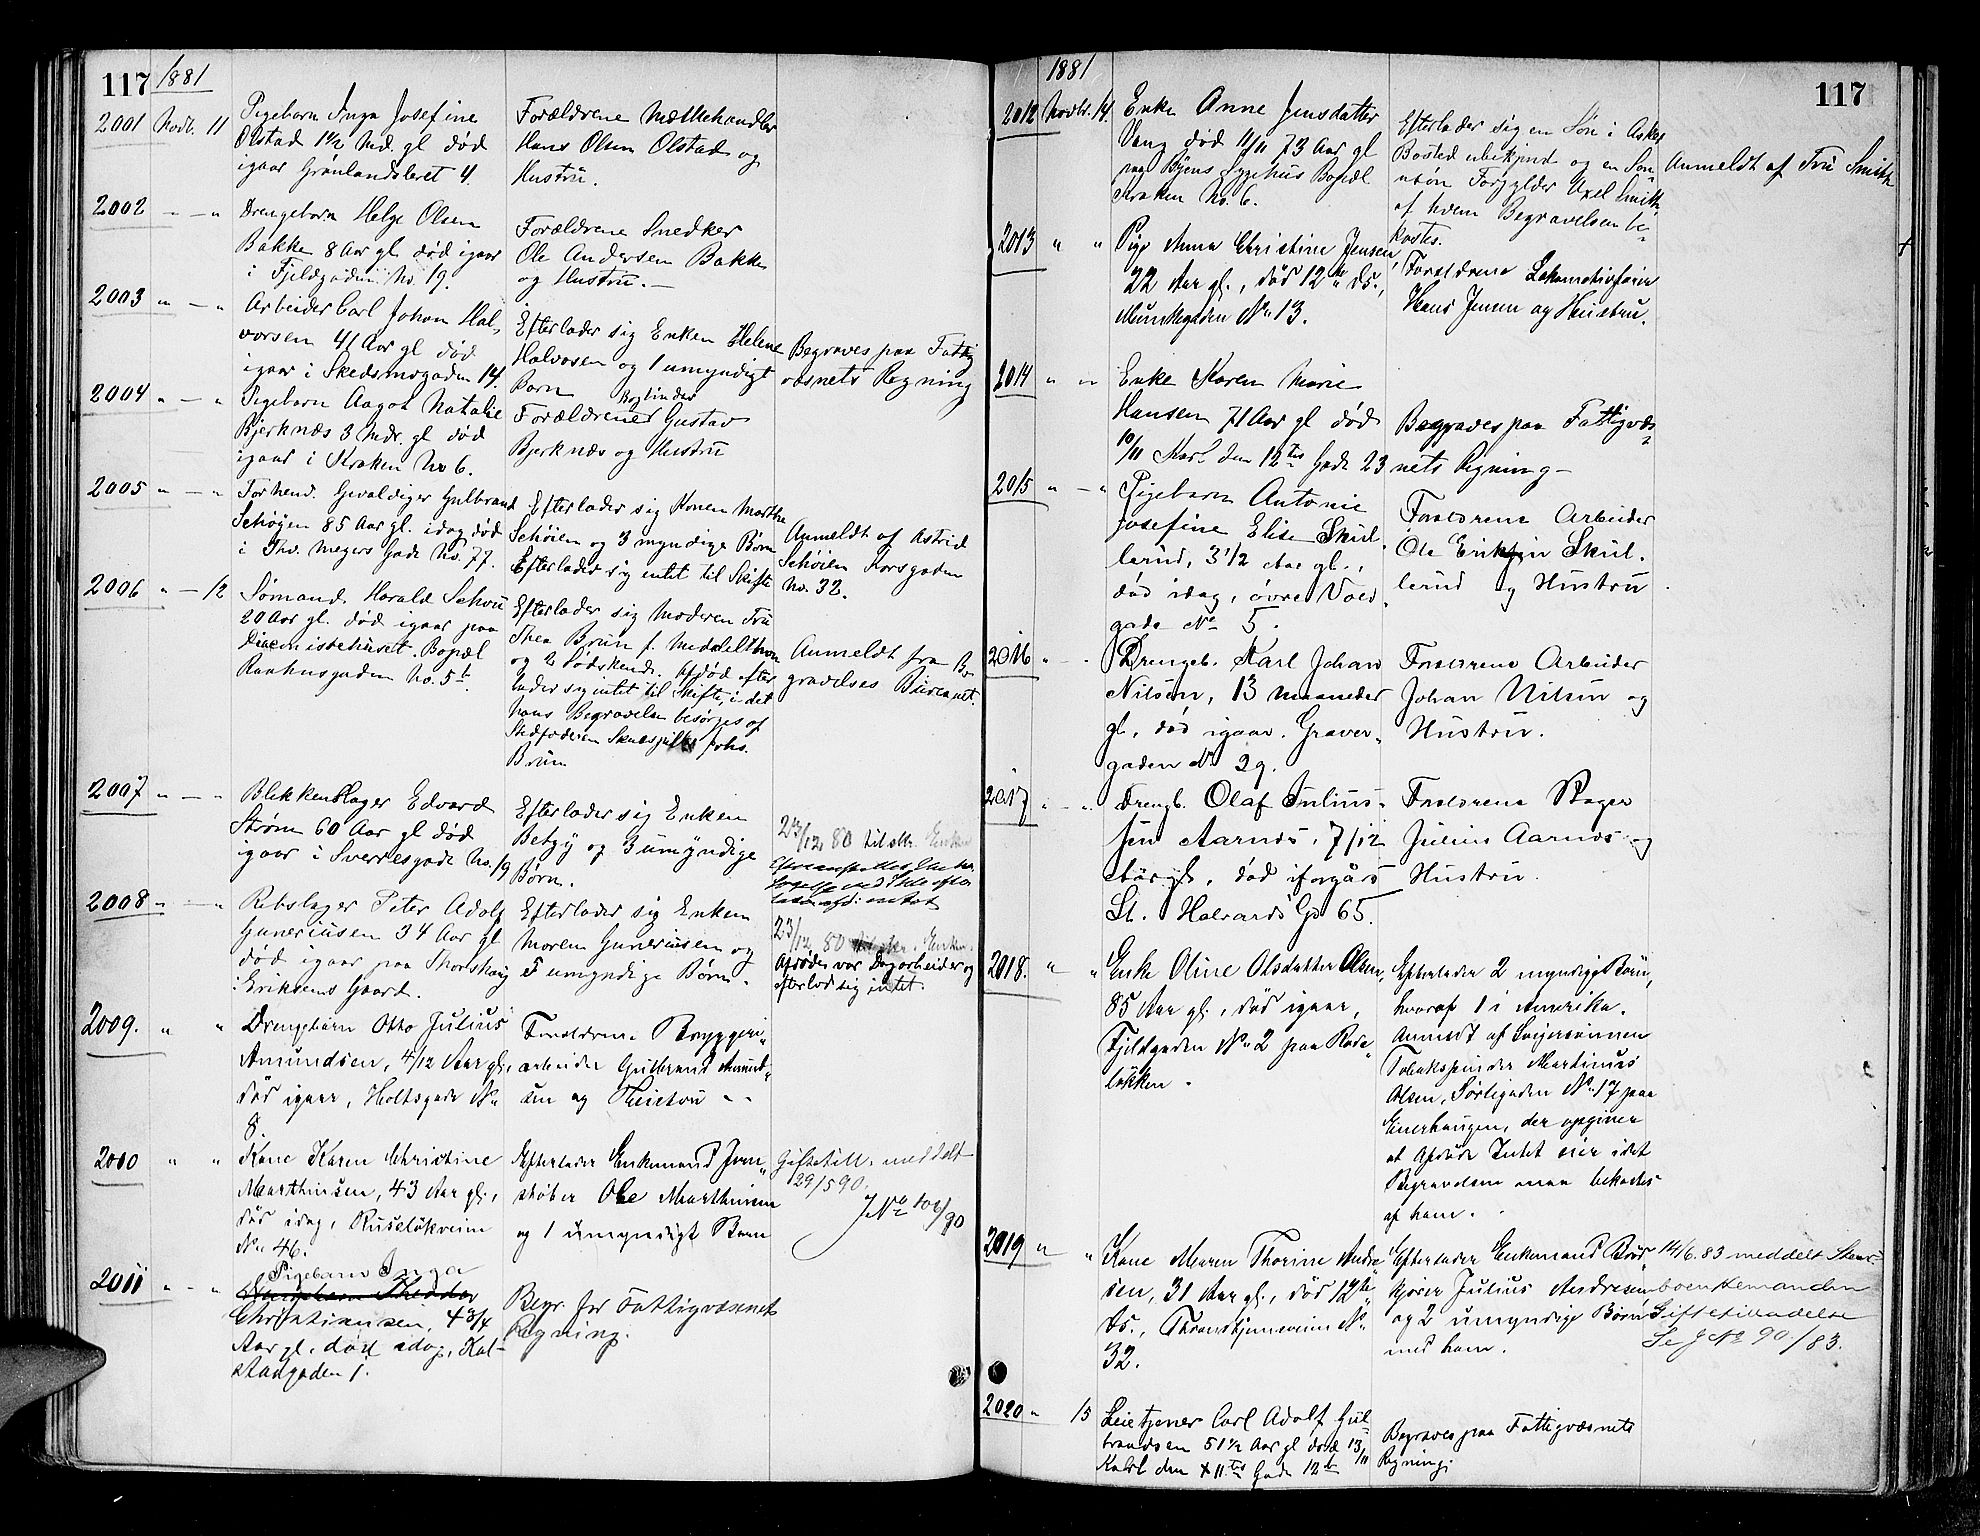 117 1881
2001 Novb. 11 Pigebarn Inga Josefine
Olstad 1 1/2 Md. gl død
igaar Grønlandsleret 4.
Forældrene Mæltehandler
Hans Olsen Olstad og
Hustru.
2002 " — " Drengebarn Helge Olsen
Bakke 8 Aar gl død igaar
i Fjeldgaden No. 19.
Forældrene Snedker
Ole Andersen Bakke
og Hustru. —
2003 " — " Arbeider Carl Johan Hal-
vorsen 41 Aar gl død
igaar i Skedsmogaden 14.
Efterlader sig Enken Helene
Halvosen og 1 umyndigt
Barn
Begraves paa Fattig
væsnets Regning
2004 " — " Pigebarn Aagot Natalie
Bjerknæs 3 Mdr. gl død
igaar i Kroken No 6.
Bogbinder
Forældrene Gustav
Bjerknæs og Hustru
2005 " — " Forhend. Gevaldiger Gulbrand
Schøyen 85 Aar gl. idag død
i Thv. Meyers Gade No. 77.
Efterlader sig Konen Marthe
Schøien og 3 myndige Børn
Efterlader sig intet til Skifte
Anmeldt af Astrid
Schøien Korsgaden
No. 32.
2006 " — 12 Sømand. Harald Schou
20 Aar gl. død igaar paa
Diaconissehuset. Bopæl
Raadhusgaden No. 5 b.
Efterlader sig Moderen Fru
Thea Brun f. Meddelthon
og 2 Sødskende. Afdød efter
lader sig intet til Skifte, i det
hans Begravelse besørges af
Stedfaderen Skuespiller Johs.
Brun
Anmeldt fra Be
gravelses Bureauet.
2007 " — " Blikkenslager Edvard
Strøm 60 Aar gl død
igaar i Sverresgade No. 19
Efterlader sig Enken
Betzy og 3 umyndige
Børn.
23/12 80 til
2008 " — " Rebslager Peter Adolf
Guneriusen 34 Aar gl
død igaar paa
Eriksens Gaard.
Efterlader sig Enken
Maren Guneriusen og
5 umyndige Børn.
23/12 80
Afdøde var Dagarbeider og
efterlod sig intet.
2009. " " Drengebarn Otto Julius
Amundsen, 4/12 Aar gl.,
død igaar, Holtsgade No
8.
Forældrene Bryggeri-
arbeider Gulbrand Amund-
sen og Hustru - -
2010 " " Kone Karen Christine
Marthinsen, 43 Aar gl.,
død idag, Ruseløkveien
No 46.
Efterlader Enkemand Jern-
støber Ole Marthinsen
og 1 umyndigt Barn
Giftetill. meddelt
29/5 90.
J No 102/90
2011 " — " Pigebarn Inga
Christiansen, 4 3/4
Aar gl. død idag, Kal-
stadgaden 1.
Begr. for Fattigvæsnets
Regning.
1881 117
2012 Novbr. 14. Enke Anne Jensdatter
Vang død 11/11 73 Aar gl
paa Byens Sygehus Bopæl
Kroken No. 6.
Efterlader sig en Søn i Asker
Bosted ubekjend og en Søn-
nesøn Forgylder Axel Smith,
af hvem Begravelsen be-
kostes.
Anmeldt af Fru Smith
2013 " " Pige Anna Christine Jensen,
22 Aar gl., død 12te ds.,
Munkegaden No 13.
Forældrene Lokomotivfører
Hans Jensen og Hustru.
2014 " " Enke Karen Marie
Hansen 71 Aar gl død
10/11 Karl den 12tes Gade 23
Begraves paa Fattigvæs-
nets Regning —
2015 " — " Pigebarn Antonie
Josefine Elise Skul-
lerud, 3 1/2 Aar gl.,
død idag, øvre Vold-
gade No 5.
Forældrene Arbeider
Ole Eriksen Skul-
lerud og Hustru
2016 " — " Drengeb. Karl Johan
Nilsen, 13 maaneder
gl, død igaar. Graver-
gaden No 29.
Forældrene Arbeider
Johan Nilsen og
Hustru.
2017 " — " Drengb. Olaf Julius
Aarnes, 7/12
død iforgårs
St. Halvards Gd 65.
Forældrene Bager
Julius Aarnæs og
Hustru.
2018. " " Enke Oline Olsdatter Olsen,
85 Aar gl., død igaar,
Fjeldgaden No 2 paa Rode-
løkken.
Efterlader 2 myndige Børn,
hvoraf 1 i Amerika.
Anmeldt af Svigersønnen
Tobakspinder Martinius
Olsen, Sørligaden No 17 paa
Enerhaugen, der opgiver
at Afdøde Intet eier idet
Begravelsen maa bekostes
af ham.
2019 " " Kone Maren Thorine Andre-
sen, 31 Aar gl., død 12te
ds., Trondhjemsveien No
32.
Efterlader Enkemand Brød-
kjører Julius Andresen
og 2 umyndige Børn
med ham.
14/6. 83 meddelt
Enkemanden
Giftetilladelse
Se J No 90/83.
2020 " 15 Leietjener Carl Adolf Gul-
brandsen 51 1/2 Aar gl død 13/11
Karl den 12tes Gade 12 b
Begraves paa Fattigvæsnets
Regning.